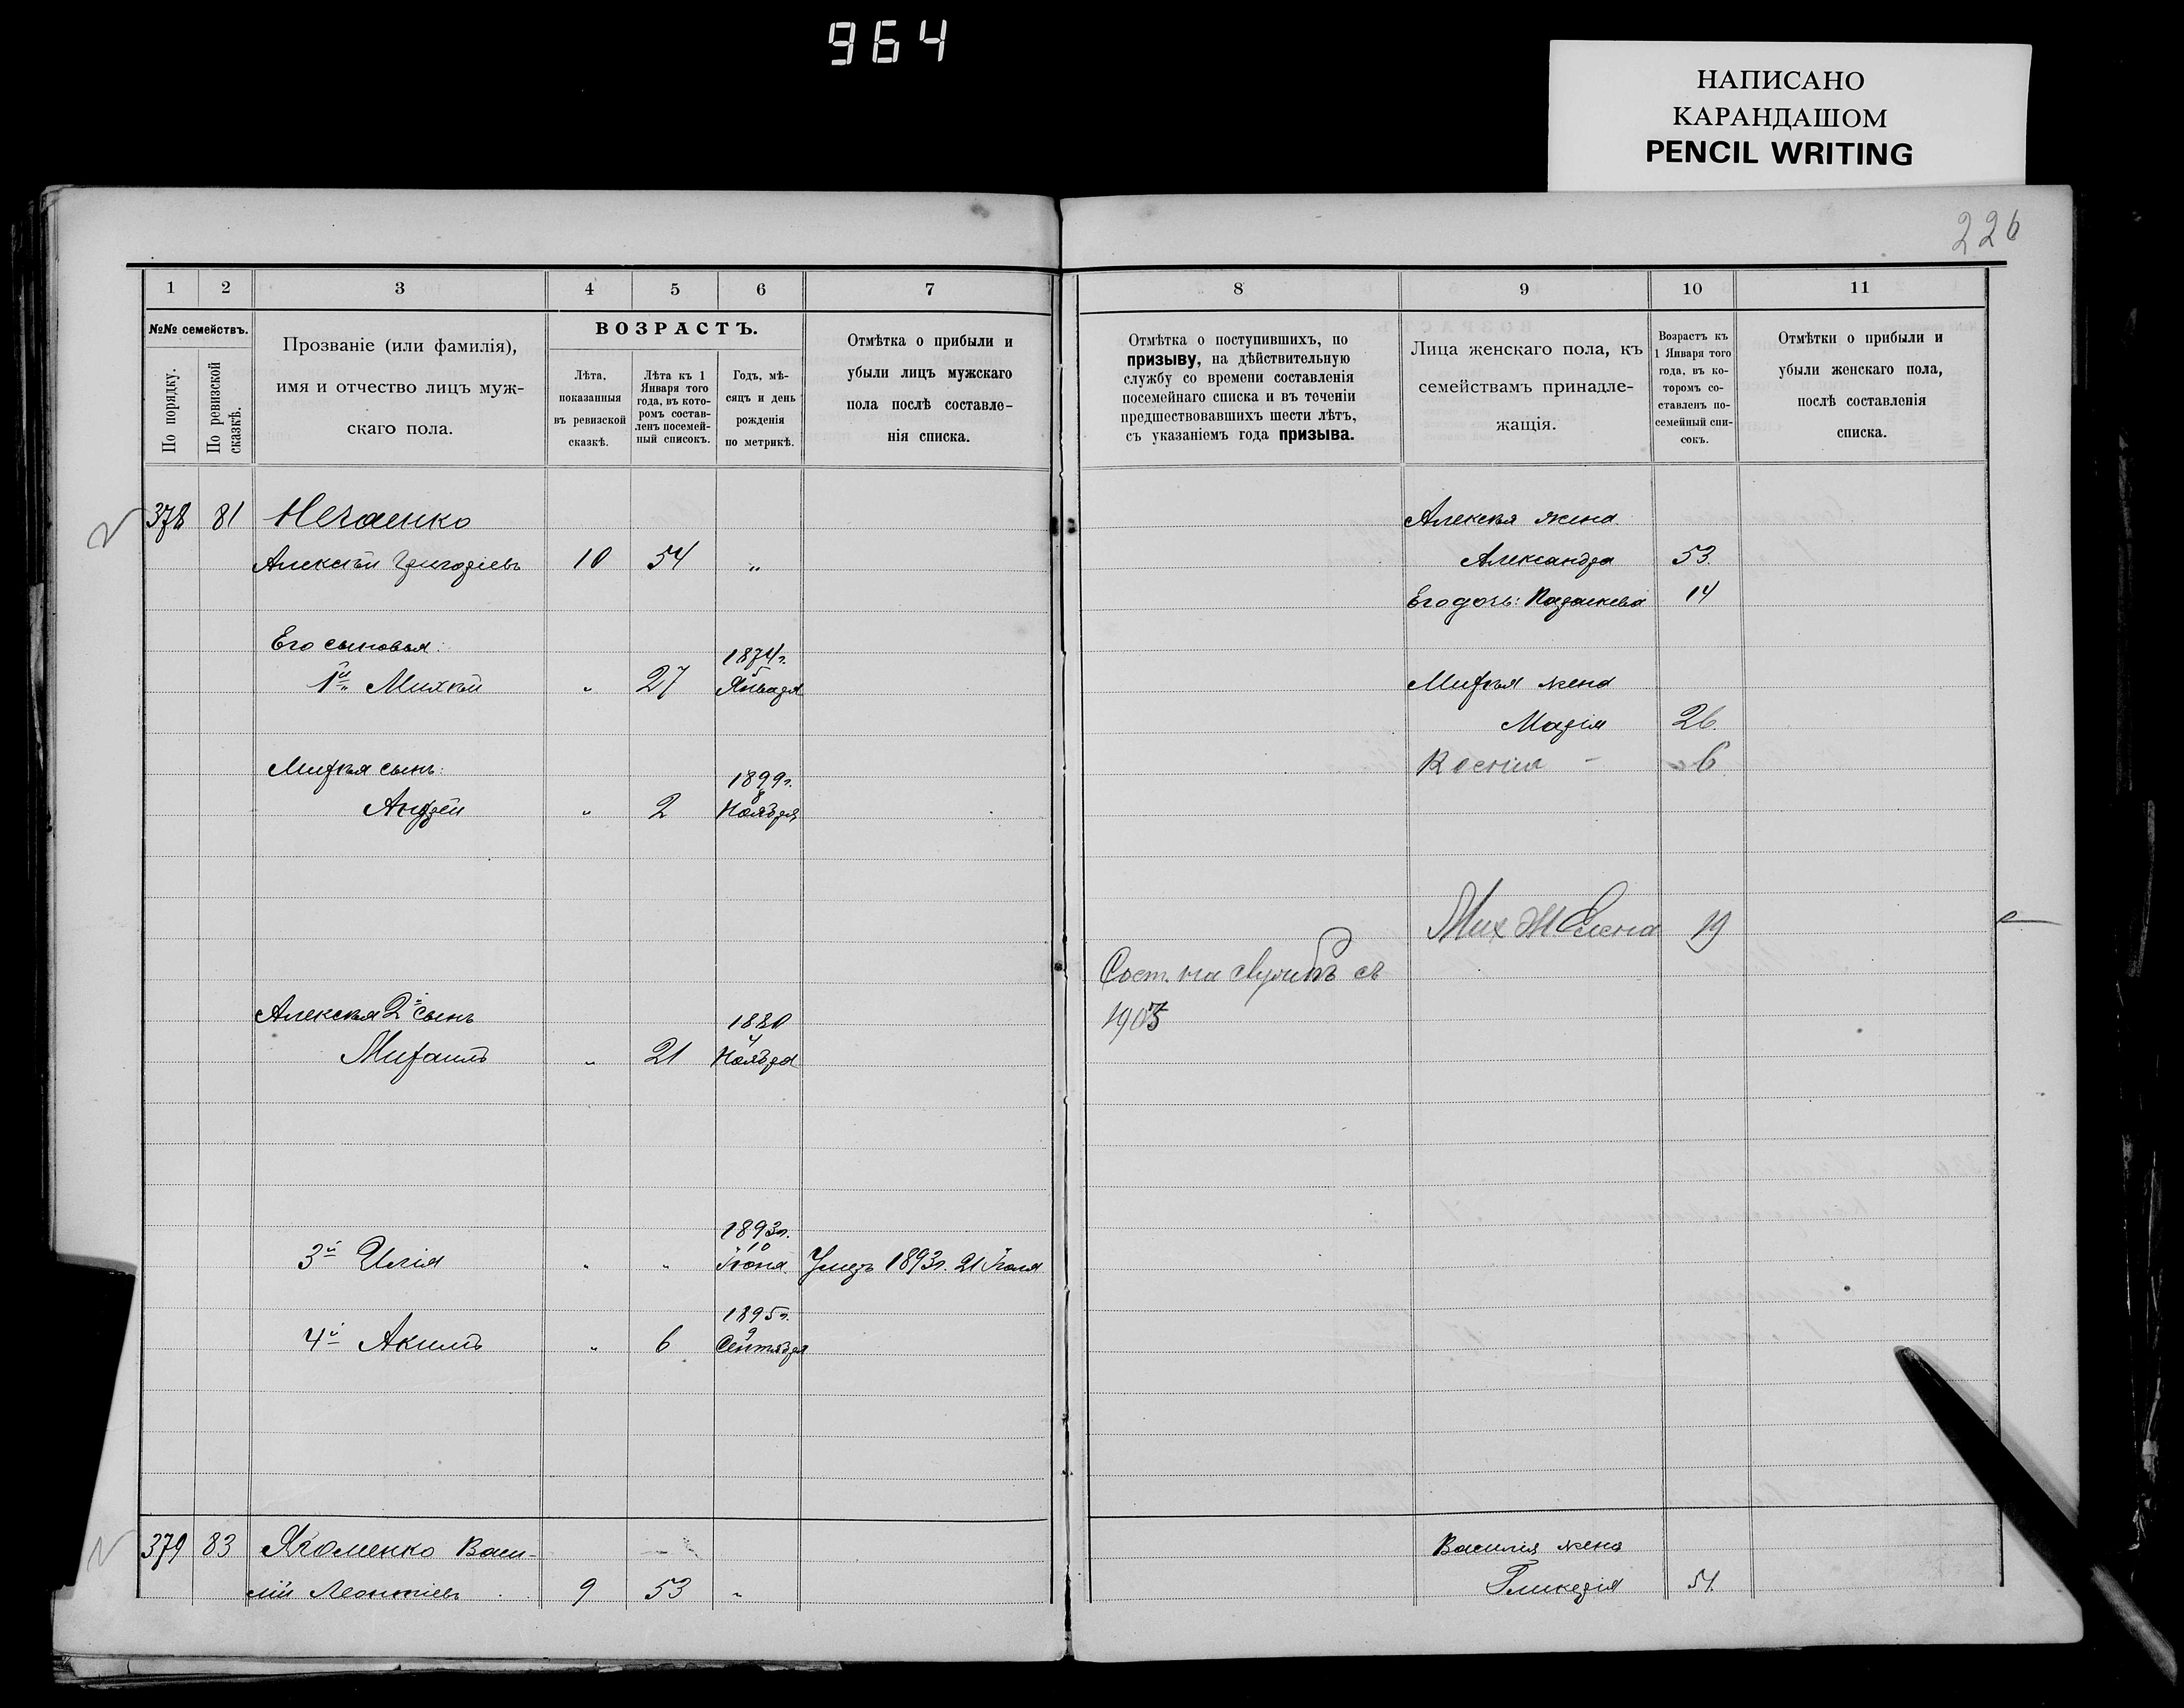 964
НАПИСАНО
КАРАНДАШОМ
PENCIL WRITING
226
1 2 3 4 5 6 7
№№ семействъ.
По порядку.
По ревизской сказкѣ.
Прозваніе (или фамилія),
имя и отчество лицъ муж-
скаго пола.
ВОЗРАСТЪ.
Лѣта,
показанныя
въ ревизской
сказкѣ.
Лѣта къ 1
Января того
года, въ кото-
ромъ состав-
ленъ посемей-
ный списокъ.
Годъ, мѣ-
сяцъ и день
рожденія
по метрикѣ.
Отмѣтка о прибыли и
убыли лицъ мужскаго
пола послѣ составле-
нія списка.
378 81 Нечаенко
Алексѣй Григоріевъ 10 54 „
Его сыновья:
1874г.
1й Михѣй „ 27 Января
Михѣя сынъ:
1899г.
8
Андрей „ 2 Ноября
Алексѣя 2й сынъ
1880
Михаилъ „ 21 Ноября
1893г.
10
3й Илія „ „ Іюня Умеръ 1893г. 21 Іюля
1895г.
9
4й Акимъ „ 6 Сентября
379 83 Якоменко Васи-
лій Леонтіевъ 9 53 „
8 9 10 11
Отмѣтка о поступившихъ, по
призыву, на дѣйствительную
службу со времени составленія
посемейнаго списка и въ теченіи
предшествовавшихъ шести лѣтъ,
съ указаніемъ года призыва.
Лица женскаго пола, къ
семействамъ принадле-
жащія.
Возрастъ къ
1 Января того
года, въ ко-
торомъ со-
ставленъ по-
семейный спи-
сокъ.
Отмѣтки о прибыли и
убыли женскаго пола,
послѣ составленія
списка.
Алексѣя жена
Александра 53.
Его дочь: Параскева 14
Михѣя жена
Марія 26.
Ксенія - 6
Мих Ж Елена 19
Сост. на службѣ съ
1903
Василія жена
Гликерія 51.